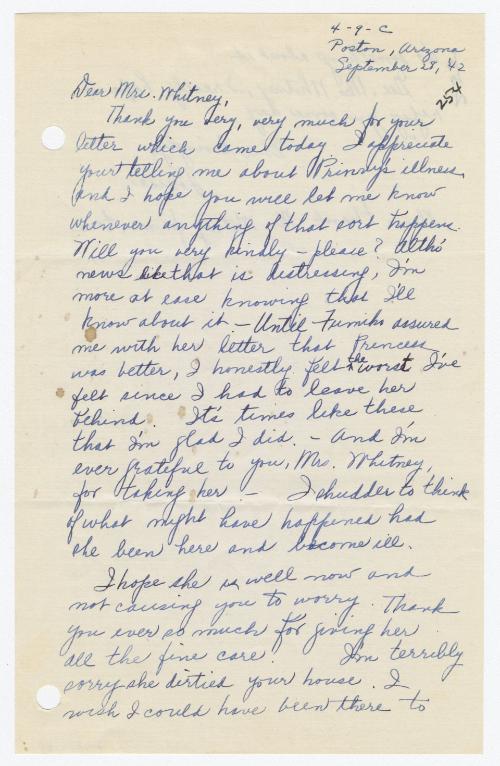 4-9-C
Poston, Arizona
September 28, '42
254
Dear Mrs. Whitney,
Thank you very, very much for your
letter which came today. I appreciate
your telling me about Prinny's illness,
and I hope you will let me know
whenever anything of that sort happens.
Will you very kindly - please? Altho'
news like that is distressing, I'm
more at ease knowing that I'll
know about it. - Until Fumiko assured
me with her letter that Princess
was better, I honestly felt the worst I've
felt since I had to leave her
behind. It's times like these
that I'm glad I did. - And I'm
ever grateful to you, Mrs. Whitney,
for taking her. - I shudder to think
of what might have happened had
she been here and become ill.
I hope she is well now and
not causing you to worry. Thank
you ever so much for giving her
all the fine care. I'm terribly
sorry she dirtied your house. I
wish I could have been there to